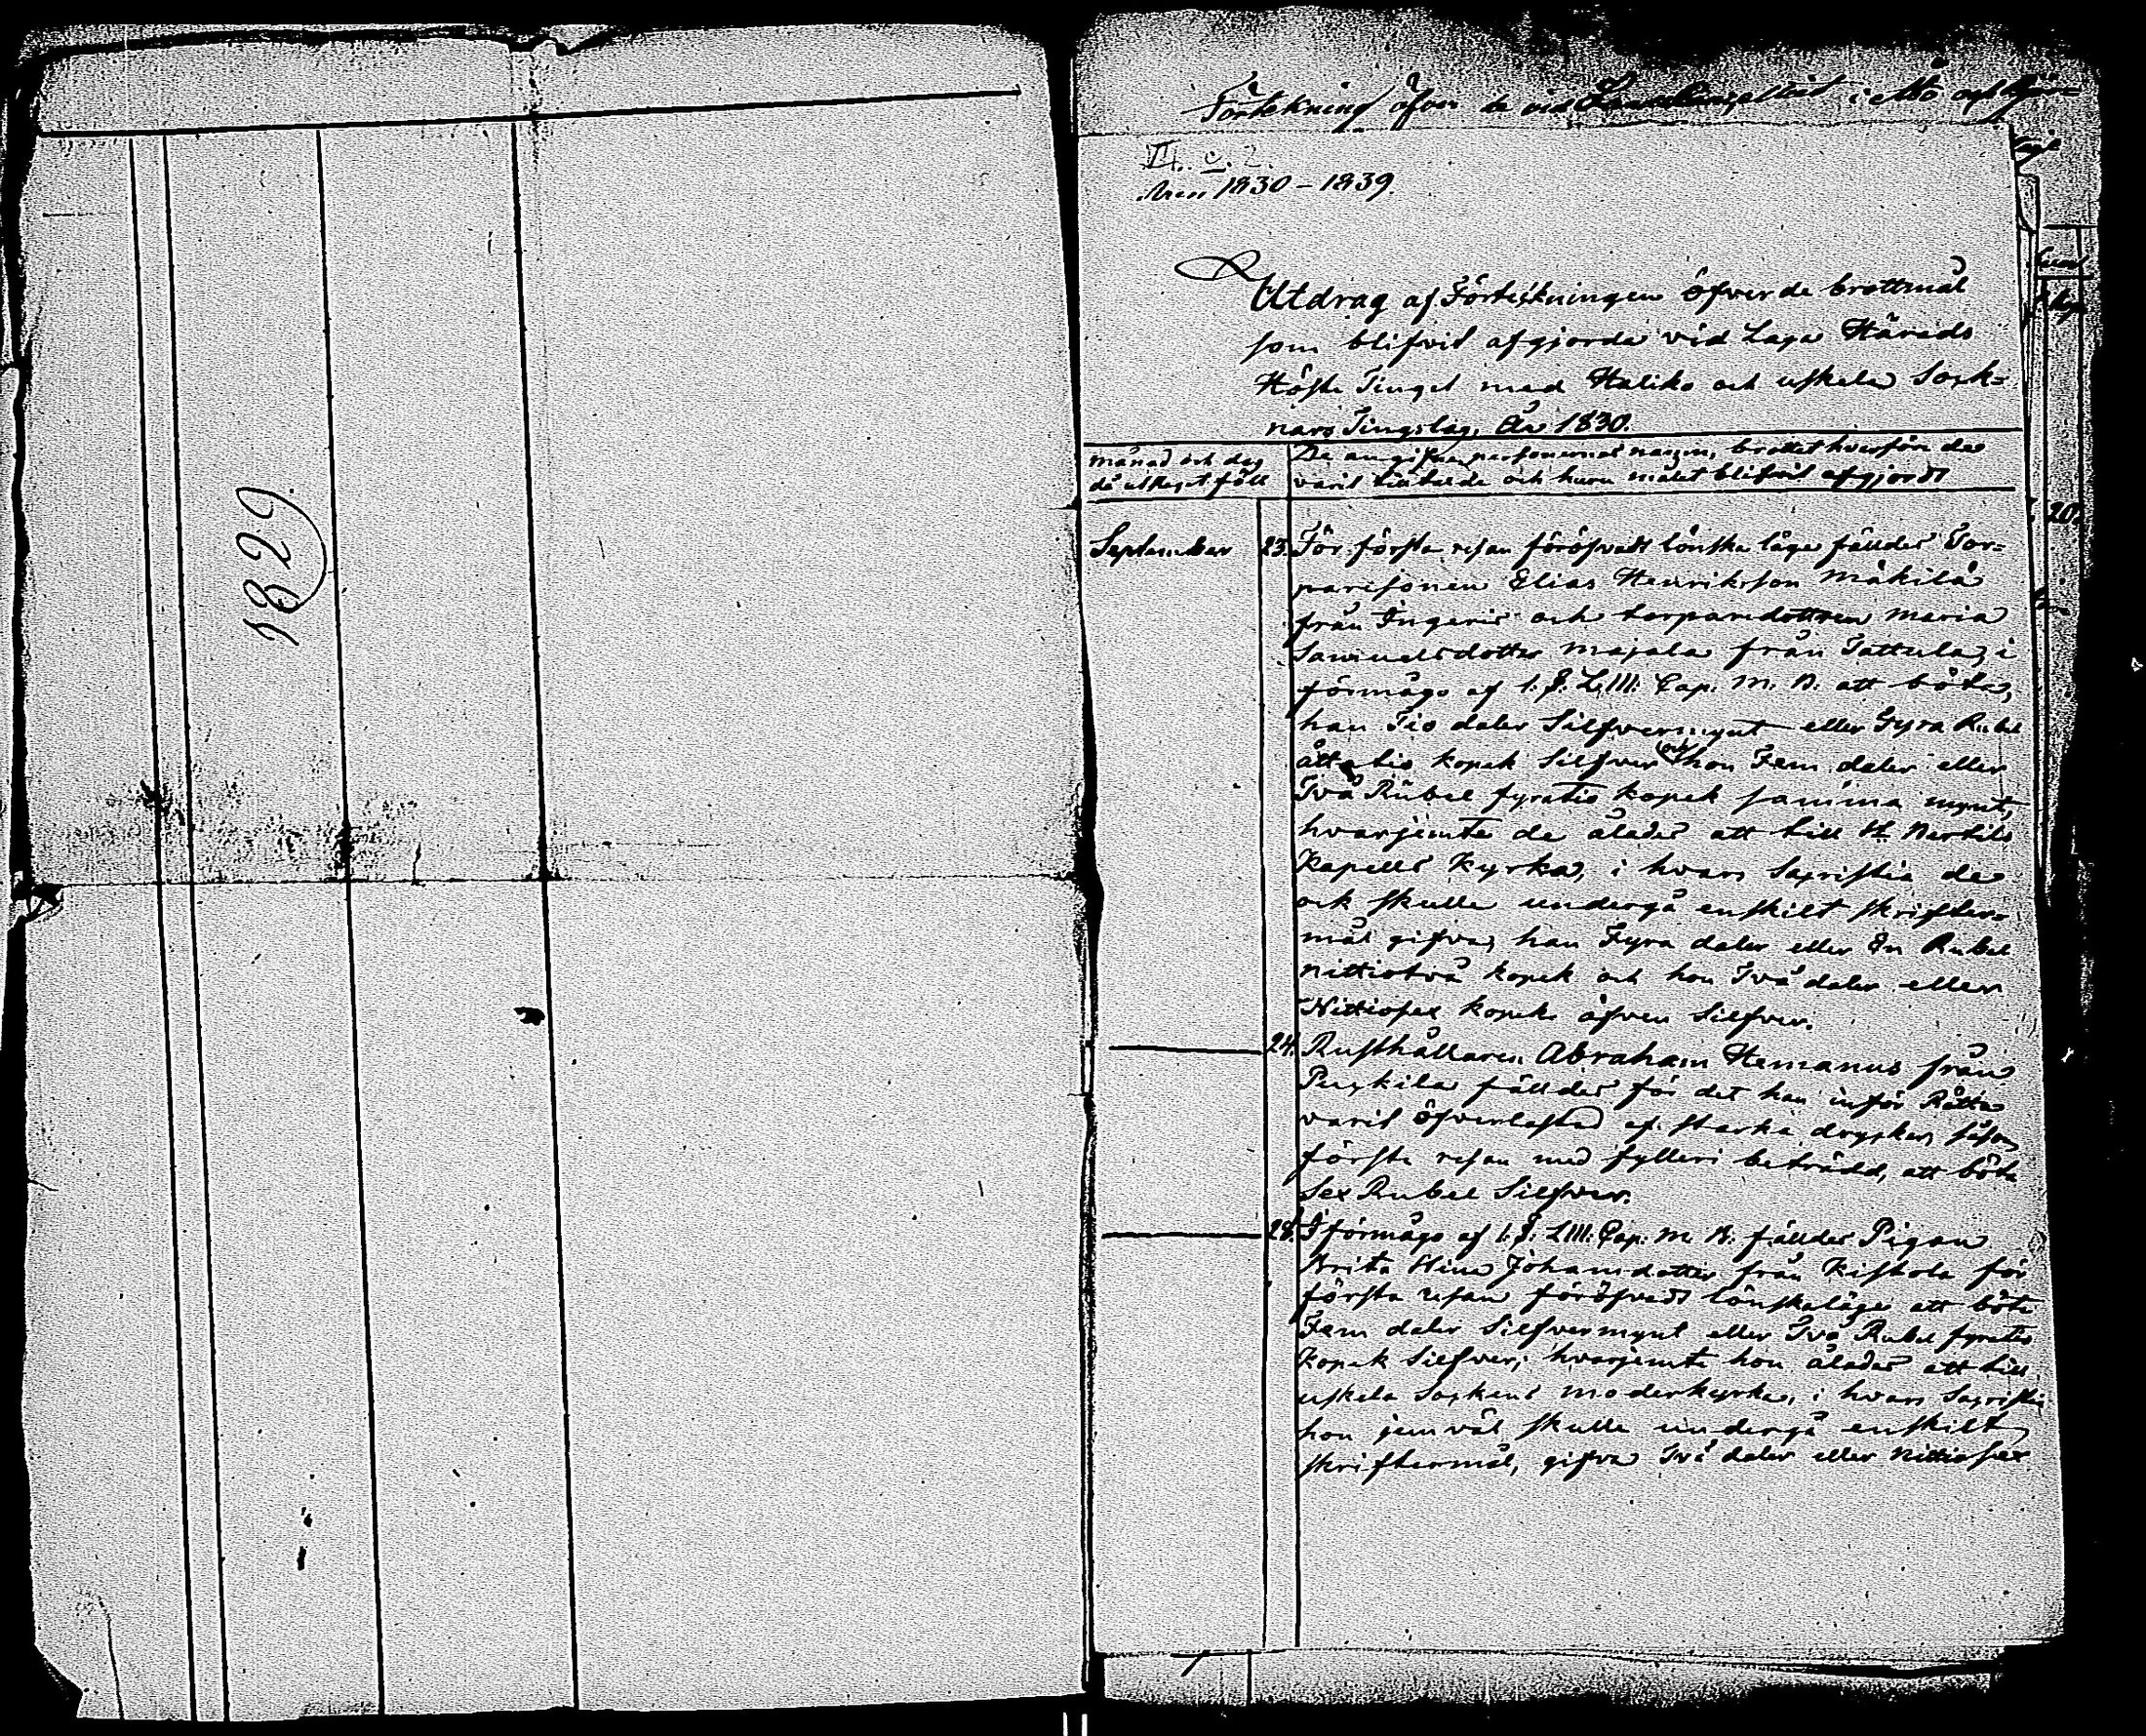 1829
Förtekning öfver de vid Landskansliet i Åbo och
III. c. 2.
Åren 1830-1839.
Utdrag af Förtekningen öfver de brottmål
som blifvit afgjorde vid Laga Härads
Höste Tinget med Haliko och uskela Sock-
nars Tingslag, År 1830.
månad och dag
då utslaget föll
De angifna personernas namn, brottet hvarföre de
varit tilltalde och huru målet blifvit afgjordt
September 23. För första resan föröfvadt lönska läge fälldes Tor-
paresonen Elias Henriksson Mäkilä
från Ingeris och torparedottren Maria
Samuelsdotter majala från Tattula, i
förmågo af 1. §. LIII. Cap. M. B. att böta,
han Tio daler Silfvermynt eller Fyra Rubel
åttatio kopek Silfver och hon Fem daler eller
Två Rubel fyratio kopek samma mynt,
hvarjemte de ålades att till St. Bertils
Kapells kyrka, i hvars Sacristia de
ock skulle undergå enskilt skrifter-
mål gifva, han Fyra daler eller En Rubel
nittiotvå kopek och hon Två daler eller
Nittiosex kopek äfven Silfver.
24. Rusthållaren Abraham Hemanus från
Puckila fälldes för det han inför Rätta
varit öfverlastad af starka drycker, såsom
första resan med fylleri beträdd, att böta
Sex Rubel Silfver.
28. I förmågo af 1. §. LIII. Cap. M. B. fälldes Pigan
Brita Stina Johansdotter från Kiskola för
första resan föröfvadt lönskaläge att böta
Fem daler Silfvermynt eller Två Rubel fyratio
kopek Silfver; hvarjemte hon ålades att till
uskela Sockens moderkyrka, i hvars Sacristia
hon jemväl skulle undergå enskilt
skriftermål, gifva Två daler eller Nittiosex